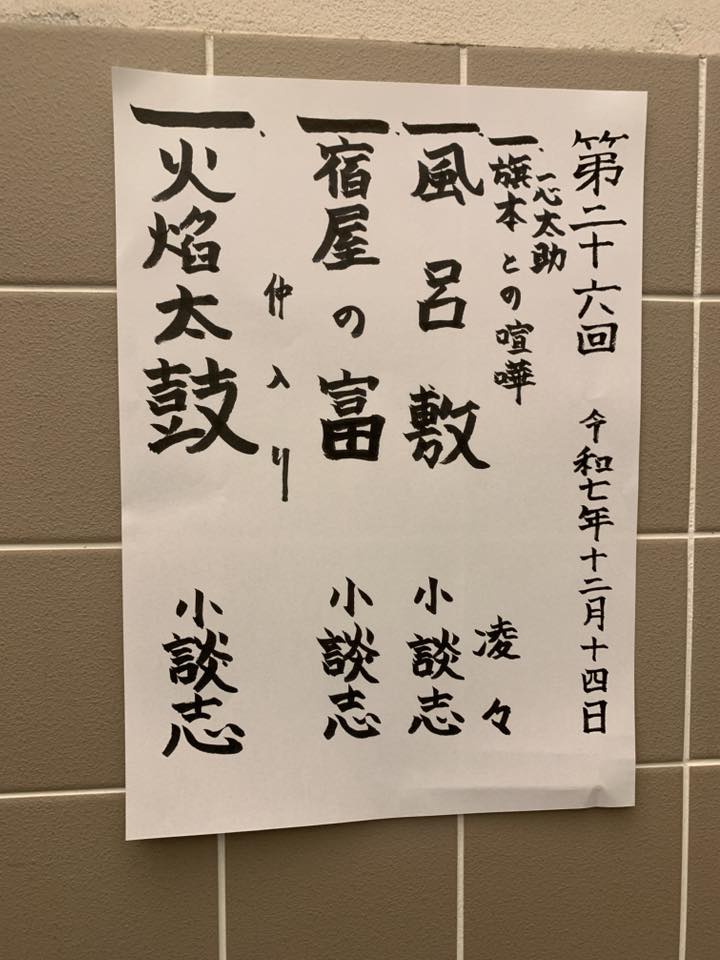 第二十六回 令和七年十二月十四日
一心太助
一、旗本との喧嘩 凌々
一、風呂敷 小談志
一、宿屋の富 小談志
仲入り
一、火焔太鼓 小談志